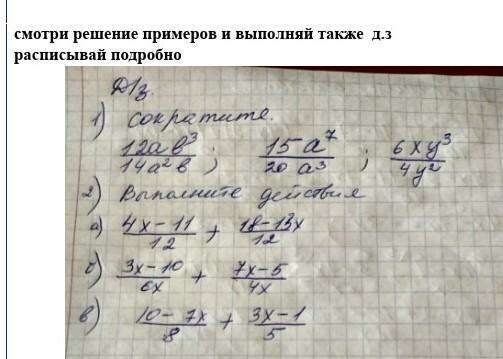 смотри решение примеров и выполняй также д.з
расписывай подробно
Д/з.
1) Сократите.
12ab³/14a²b ; 15a⁷/20a³ ; 6xy³/4y²
2) Выполните действия
а) 4x-11/12 + 18-13x/12
б) 3x-10/6x + 7x-5/4x
в) 10-7x/8 + 3x-1/5